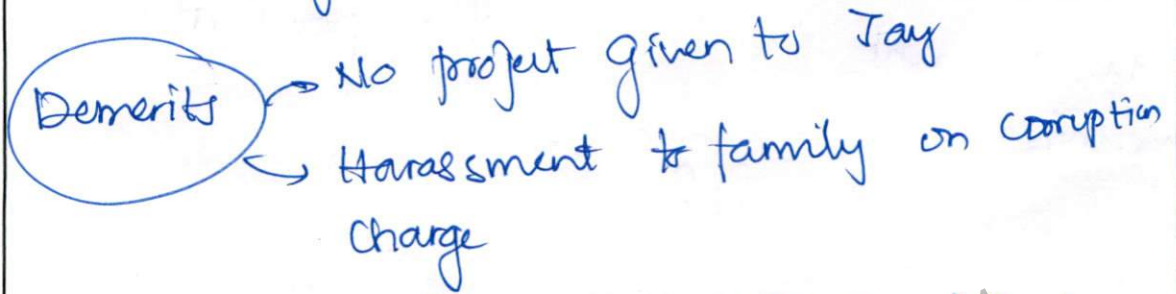 Demerits
→ No project given to Jay
→ Harassment to family on corruption
Charge